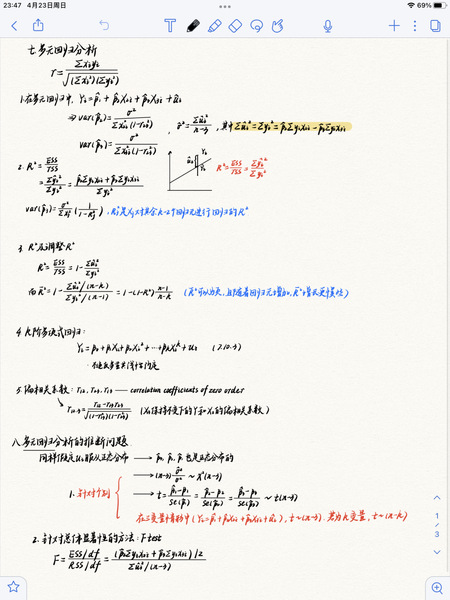 23:47 4月23日周日
69%
七.多元回归分析
r = Σxᵢyᵢ / √(Σxᵢ²)(Σyᵢ²)
1.在多元回归中, Yᵢ = β̂₁ + β̂₂X₂ᵢ + β̂₃X₃ᵢ + ûᵢ
⇒ var(β̂₂) = σ² / Σx₂ᵢ²(1-r₂₃²) , σ̂² = Σûᵢ² / n-3 , 其中 Σûᵢ² = Σyᵢ² - β̂₂Σyᵢx₂ᵢ - β̂₃Σyᵢx₃ᵢ
var(β̂₃) = σ² / Σx₃ᵢ²(1-r₂₃²)
2. R² = ESS / TSS
= Σŷᵢ² / Σyᵢ² = β̂₂Σyᵢx₂ᵢ + β̂₃Σyᵢx₃ᵢ / Σyᵢ²
ûᵢ Yᵢ Ŷᵢ
R² = ESS / TSS = Σŷᵢ² / Σyᵢ²
var(β̂ⱼ) = σ² / Σxⱼ² (1 / 1-Rⱼ²) , Rⱼ²是Xⱼ对其余k-2个回归元进行回归的R²
3. R²及调整R²
R² = ESS / TSS = 1 - Σûᵢ² / Σyᵢ²
而R̄² = 1 - Σûᵢ²/(n-k) / Σyᵢ²/(n-1) = 1-(1-R²) n-1 / n-k (R̄²可以为负,且随着回归元增加, R̄²增长更慢些)
4. k阶多项式回归:
Yᵢ = β₀ + β₁Xᵢ + β₂Xᵢ² + ⋯ + βₖXᵢᵏ + uᵢ (7.10.3)
5.偏相关系数: r₁₂, r₁₃, r₂₃ — correlation coefficients of zero order
r₁₂.₃ = r₁₂ - r₁₃r₂₃ / √(1-r₁₃²)(1-r₂₃²) (X₃保持不变下的Y和X₂的偏相关系数)
八.多元回归分析的推断问题
同样假定uᵢ服从正态分布 → β̂₂, β̂₃, β̂₁也是正态分布的
→ (n-3) σ̂² / σ² ~ χ²(n-3)
1. 针对个别 → t = β̂₁-β₁ / se(β̂₁) = β̂₂-β₂ / se(β̂₂) = β̂₃-β₃ / se(β̂₃) ~ t(n-3)
在三变量情形中 (Yᵢ = β̂₁ + β̂₂X₂ᵢ + β̂₃X₃ᵢ + ûᵢ), t~(n-3). 若为k变量, t~(n-k)
2. 针对总体显著性的方法: F test
F = ESS/df / RSS/df = (β̂₂Σyᵢx₂ᵢ + β̂₃Σyᵢx₃ᵢ)/2 / Σûᵢ²/(n-3)
1
3